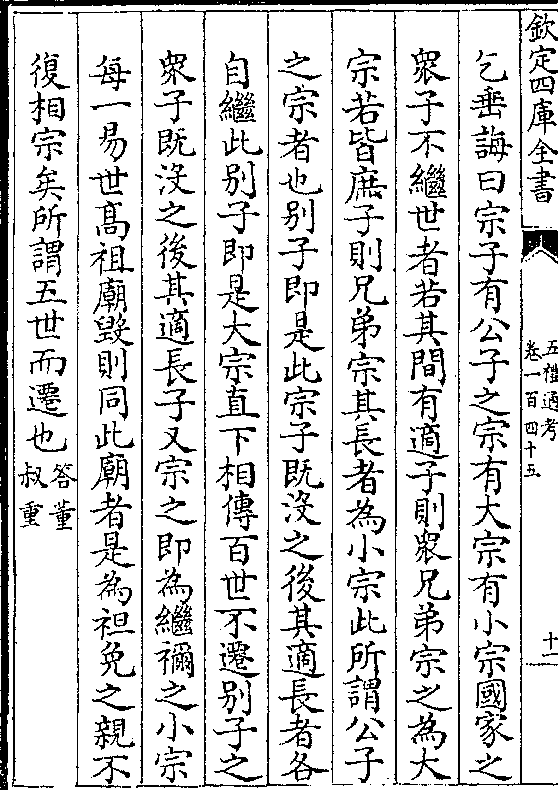 欽定四庫全書
五禮通考
卷一百四十五
十一
乞垂誨曰宗子有公子之宗有大宗有小宗國家之
衆子不繼世者若其間有適子則衆兄弟宗之為大
宗若皆庶子則兄弟宗其長者為小宗此所謂公子
之宗者也别子即是此宗子既沒之後其適長者各
自繼此别子即是大宗直下相傳百世不遷别子之
衆子既沒之後其適長子又宗之即為繼禰之小宗
每一易世髙祖廟毀則同此廟者是為袒免之親不
復相宗矣所謂五世而遷也答董
叔重